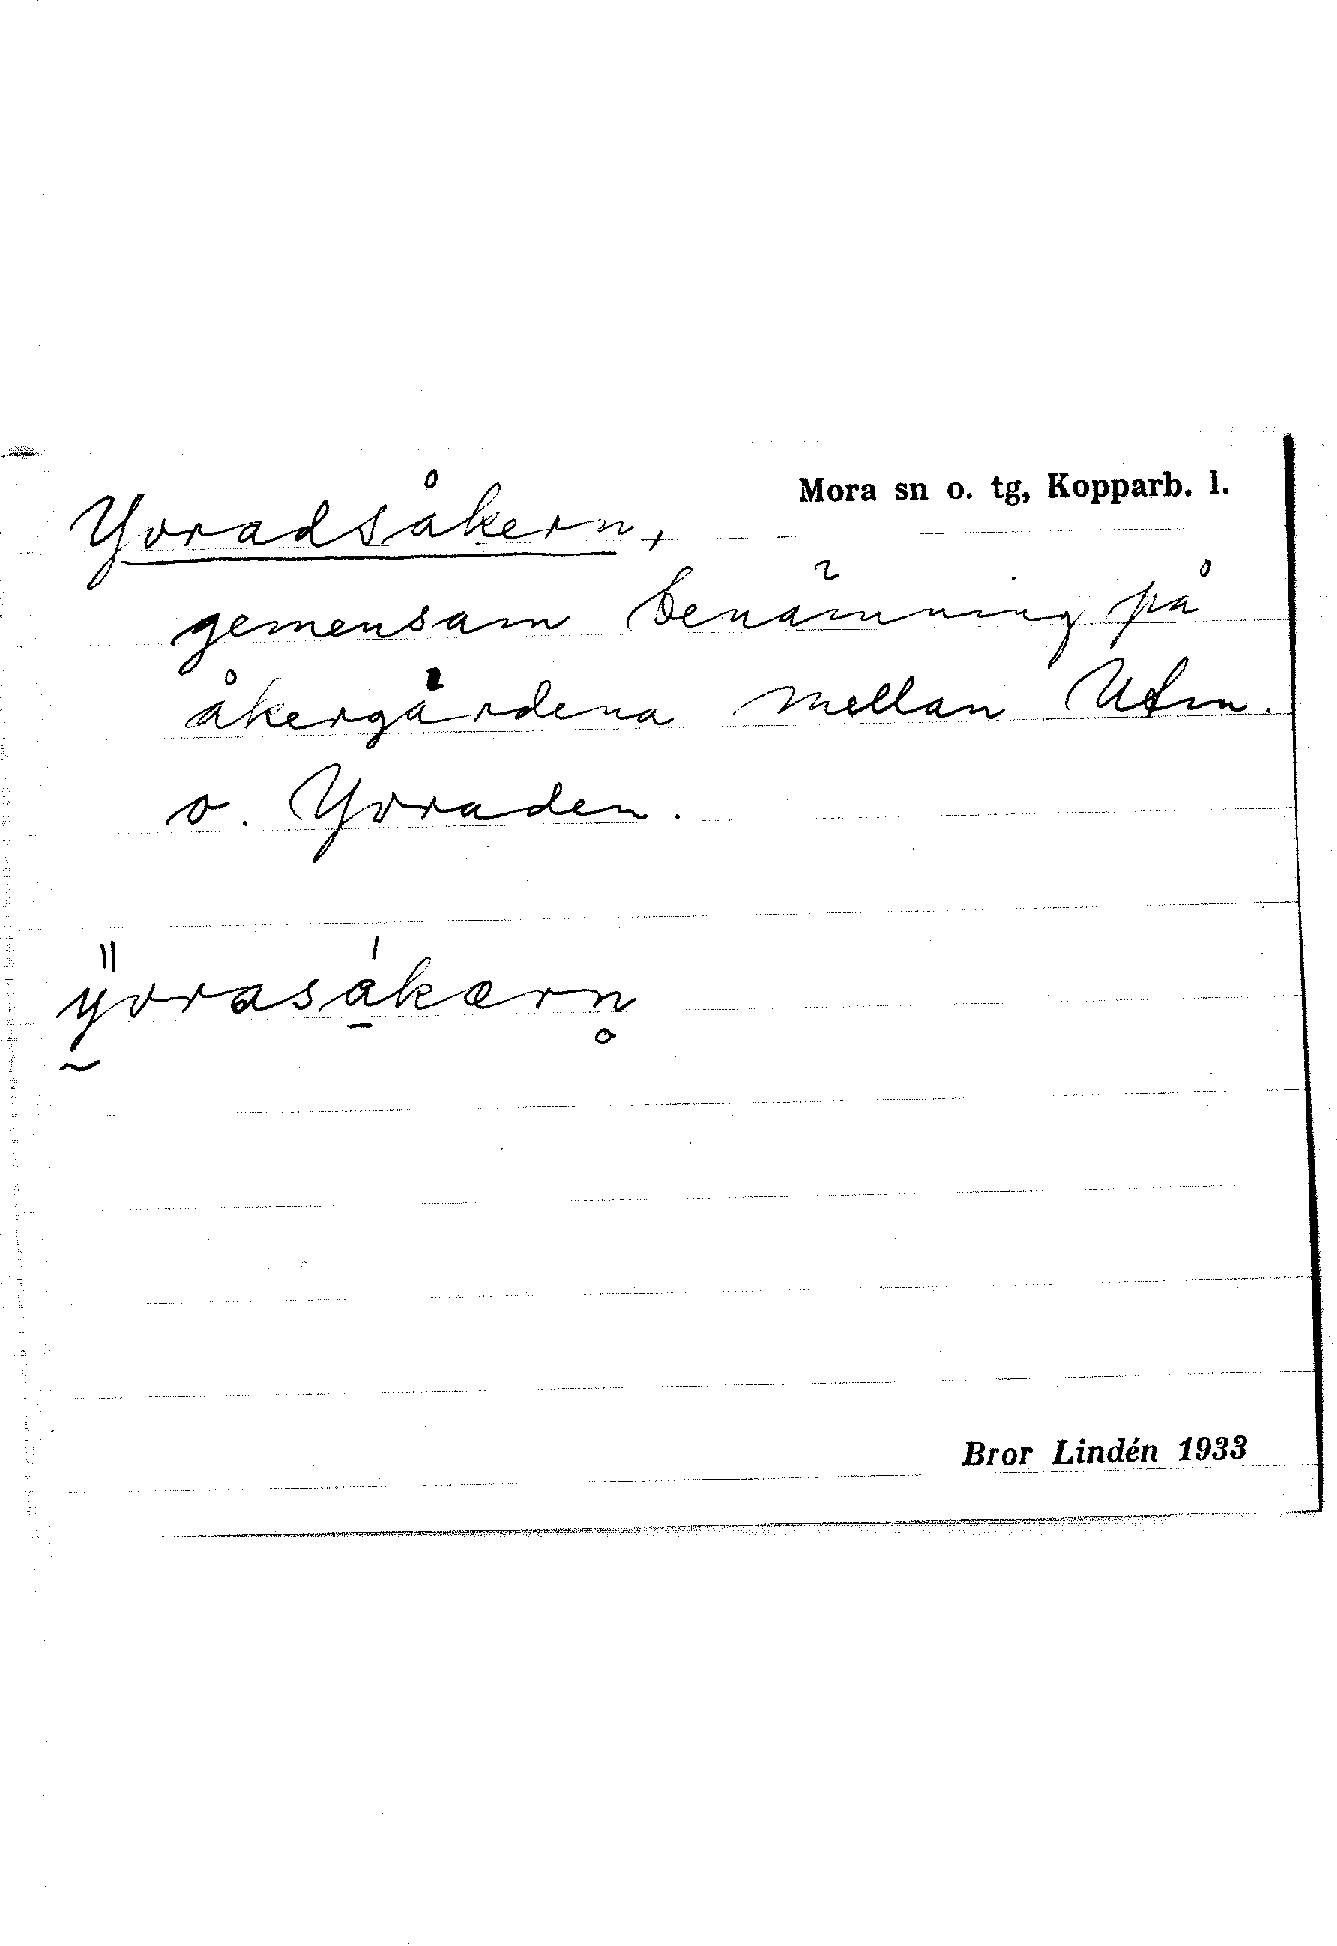 Mora sn o. tg, Kopparb. l.
Yvradsåkern,
gemensam benämning på
åkergärdena mellan Utm.
o. Yvraden.
yvrasákærn
Bror Lindén 1933